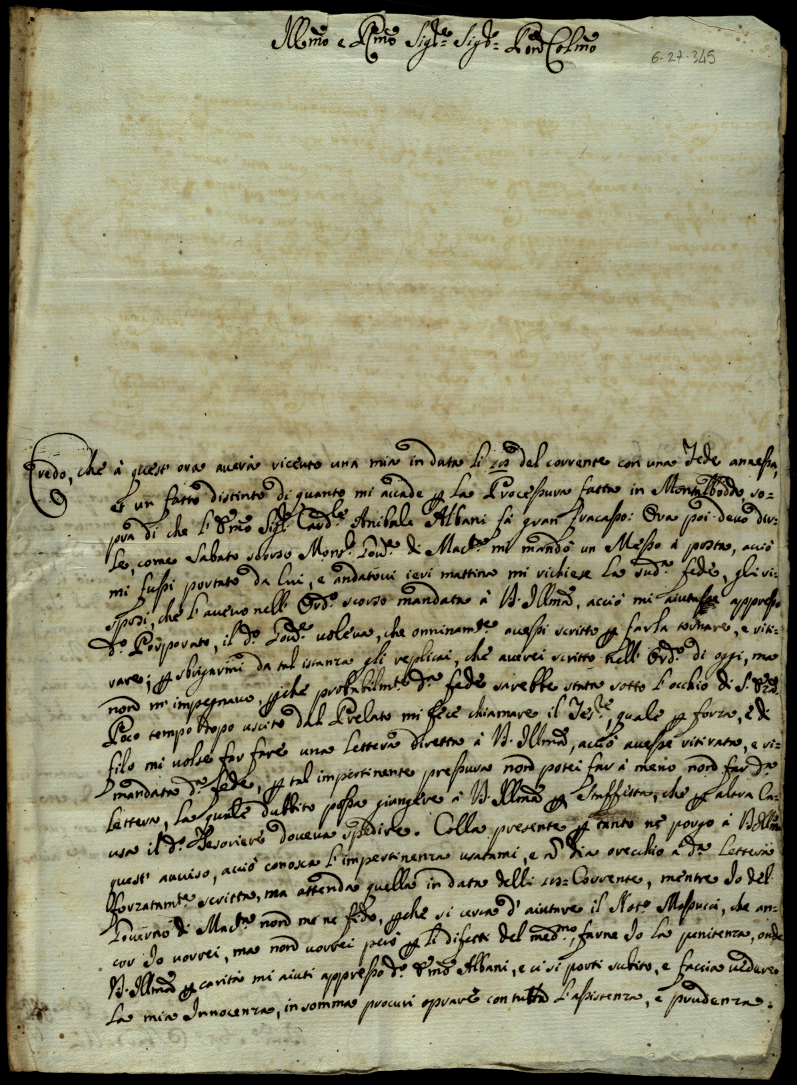 Ill.mo e R.mo Sig.re Sig.re Pron Col.mo
6-27-345
Credo, che à quest' ora averà ricevuto una mia in data li del corrente con una Fede annessa,
et un fatto distinto di quanto mi accade p la Processura fatta in Montalboddo, so-
pra di che l'E.mo Sig.r Card.le Anibale Albani fà gran fracasso: Ora poi devo dir-
le, come Sabato scorso Mons.r Gov.re di Mac.ta mi mandò un Messo à posta, acciò
mi fussi portato da lui, e andatovi ieri mattina mi richiese la sud.a fede, gli ri-
sposi, che l'avevo nell' Ord.o scorso mandata à V.S. Ill.ma, acciò mi aiutasse appresso
d.o Porporato, il d.o Gov.re voleva, che onninam.te avessi scritto p farla tornare, e riti-
rare; p sbrigarmi da tal istanza gli replicai, che averei scritto nell' Ord.o di oggi, ma
non m' impegnavo, pche probabilm.te d.a fede sarebbe stata sotto l'occhio di S. Em.za
Poco tempo dopo uscito dal Prelato mi fece chiamare il Tes.re, quale p forza, e di
filo mi volse far fare una lettera diretta à V.S. Ill.ma, acciò avesse ritirata, e ri-
mandata d.a fede, p tal impertinente pressura non potei far à meno non far d.a
lettera, la quale dubbito possa giungere à V.S. Ill.ma p Staffetta, che p altra Ca-
usa il d.o Tesoriere doveva spedire. Colla presente p tanto ne porgo à V.S. Ill.ma
quest' avviso, acciò conosca l'impertinenza usatami, e nō dia orecchio à d.a lettera
sforzatam.te scritta, ma attenda quella in data delli Corrente, mentre Io del
Governo di Mac.ta non me ne fido, pche si cerca d' aiutare il Not.o Massucci, che an-
cor Io vorrei, ma non vorrei però p li difetti del med.mo, farne Io la penitenza, onde
V.S. Ill.ma p carità mi aiuti appresso d.o E.mo Albani, e ci si porti subito, e faccia vedere
la mia Innocenza, in somma procuri oprare con tutta l'assistenza, e prudenza.